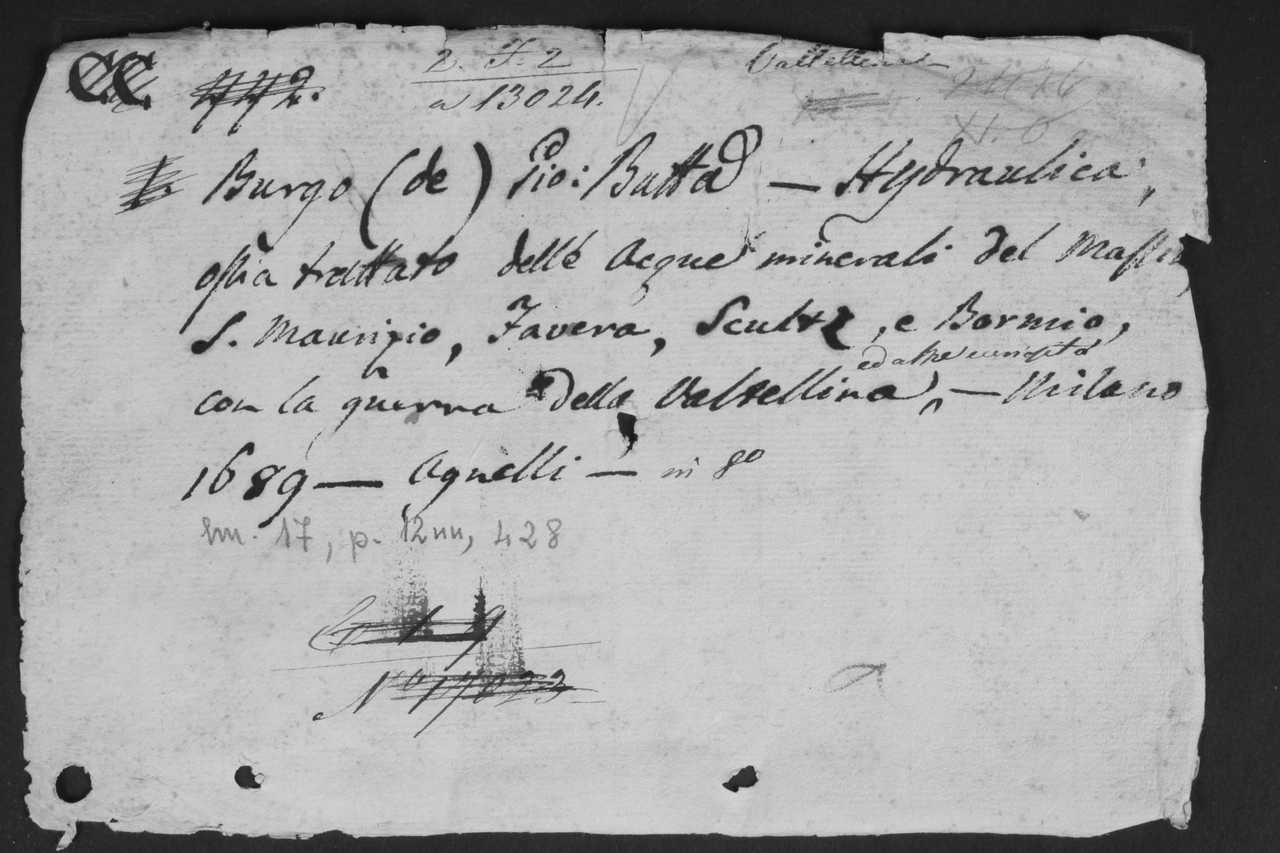 CC 772. 2. F. 2 Valtellina
a 13024.
Burgo (de) Gio: Batta – Hydraulica,
ossia trattato delle acque minerali del Massin
S. Maurizio, Favera, Scultz, e Bormio,
ed altre curiosità
con la guerra della Valtellina, – Milano
1689 – Agnelli – in 8º
lm. 17, p. 12nn, 428
Nº 17023